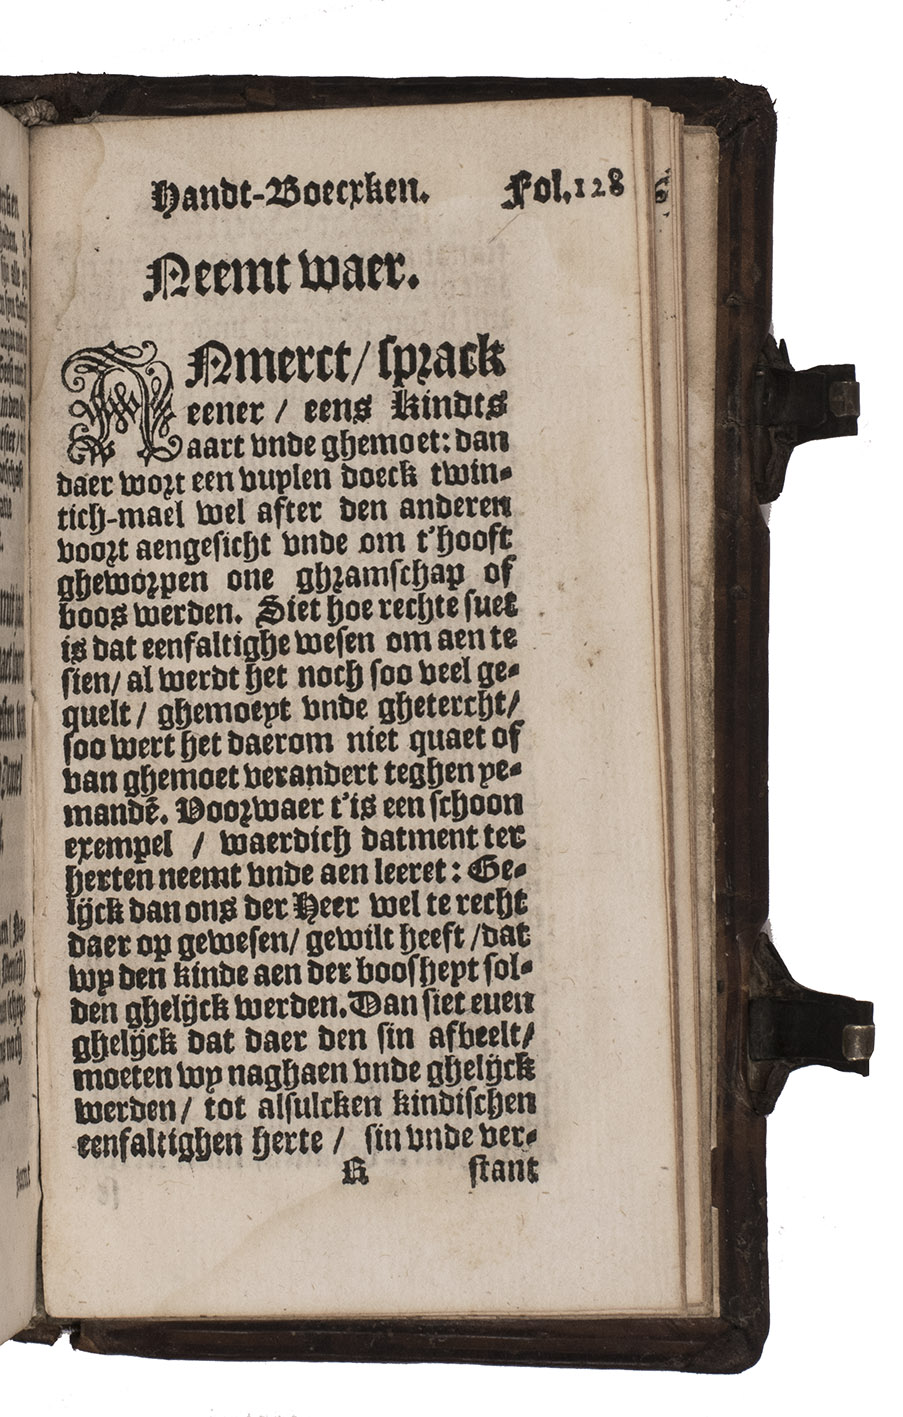 Handt-Boecxken. Fol. 128
Neemt waer.
ANmerct / sprack
eener / eens kindts
aart vnde ghemoet: dan
daer wort een vuylen doeck twin-
tich-mael wel after den anderen
voort aengesicht vnde om t'hooft
gheworpen one ghramschap of
boos werden. Siet hoe rechte suet
is dat eenfaltighe wesen om aen te
sien / al werdt het noch soo veel ge-
quelt / ghemoeyt vnde ghetercht /
soo wert het daerom niet quaet of
van ghemoet verandert teghen ye-
mandē. Voorwaer t'is een schoon
exempel / waerdich datment ter
herten neemt vnde aen leeret: Ge-
lijck dan ons der Heer wel te recht
daer op gewesen / gewilt heeft / dat
wy den kinde aen der boosheyt sol-
den ghelijck werden. Dan siet euen
ghelijck dat daer den sin afbeelt /
moeten wy naghaen vnde ghelijck
werden / tot alsulcken kindischen
eenfaltighen herte / sin vnde ver-
R stant